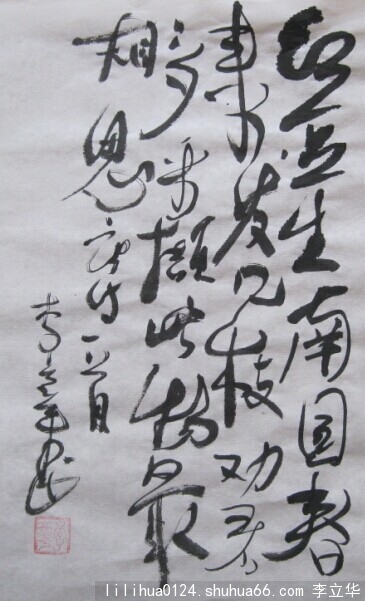 红豆生南国春
来发几枝劝君
多采撷此物最
相思 唐诗一首
李立华书
lilihua0124.shuhua66.com 李立华